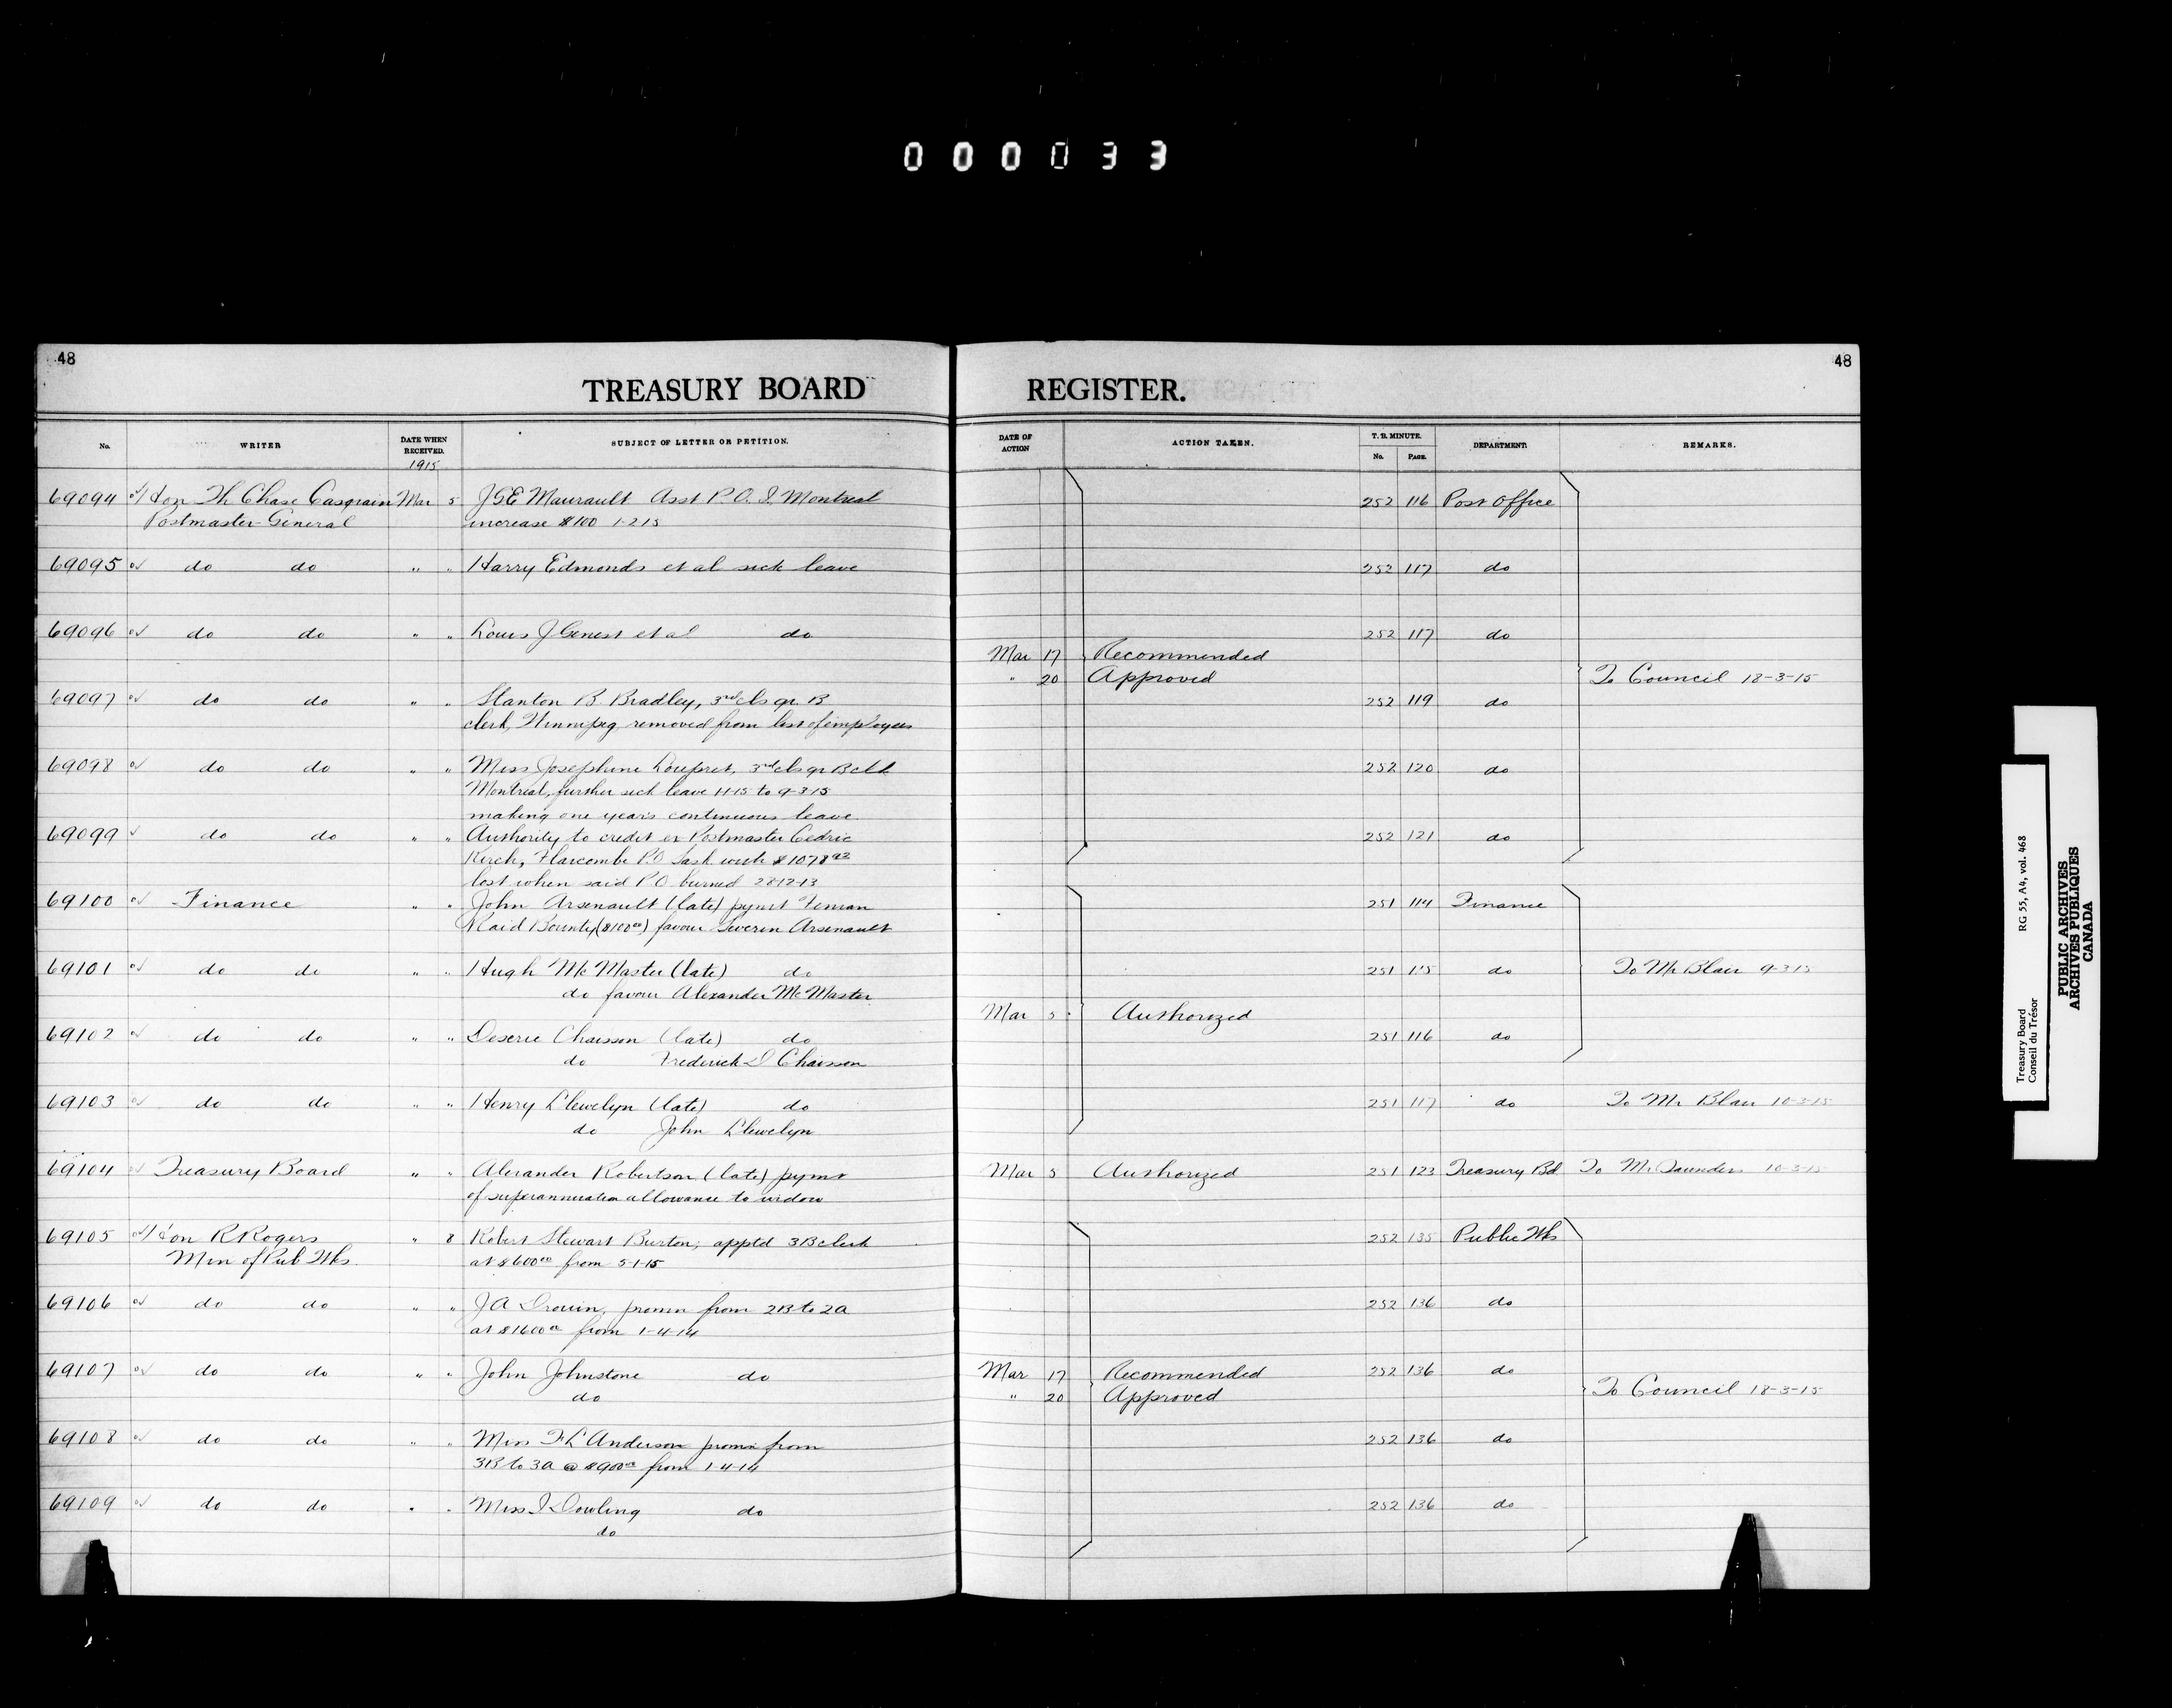 000033
48
48
TREASURY BOARD REGISTER.
No. WRITER DATE WHEN RECEIVED. SUBJECT OF LETTER OR PETITION. DATE OF ACTION ACTION TAKEN. T. B. MINUTE. No. PAGE. DEPARTMENT. REMARKS.
1915
69094 Hon Th Chase Casgrain Mar 5 JGE Maurault Asst P.O.I. Montreal 252 116 Post Office
Postmaster-General increase $100 1-2-15
69095 do do " " Harry Edmonds et al sick leave 252 117 do
69096 do do " " Louis J Genest et al do 252 117 do
Mar 17 Recommended
" 20 Approved To Council 18-3-15
69097 do do " " Stanton B. Bradley, 3rd cls gr. B 252 119 do
clerk, Winnipeg, removed from list of employees
69098 do do " " Miss Josephine Loupret, 3rd cls gr B clk 252 120 do
Montreal, further sick leave 1-1-15 to 9-3-15
making one year's continuous leave
69099 do do " " Authority to credit ex Postmaster Cedric 252 121 do
Kirch, P.O Sask with $1078
lost when said P.O burned 28-12-13
69100 Finance " " John Arsenault (late) pymt Fenian 251 114 Finance
Raid Bounty ($100 00) favour Severin Arsenault
69101 do do " " Hugh McMaster (late) do 251 115 do To Mr Blair 9-3-15
do favour Alexander McMaster
Mar 5 Authorized
69102 do do " " Deserie Chaisson (late) do 251 116 do
do Frederick D Chaisson
69103 do do " " Henry Llewelyn (late) do 251 117 do To Mr Blair 10-3-15
do John Llewelyn
69104 Treasury Board " " Alexander Robertson (late) pymt Mar 5 Authorized 251 123 Treasury Bd To Mr Saunders 10-3-15
of superannuation allowance to widow
69105 Hon R Rogers " 8 Robert Stewart Burton, apptd 3B clerk 252 135 Public Wks
Min of Pub Wks. at $600 00 from 5-1-15
69106 do do " " JA Drouin, promn from 2B to 2A 252 136 do
at $1600 00 from 1-4-14
69107 do do " " John Johnstone do Mar 17 Recommended 252 136 do
do " 20 Approved To Council 18-3-15
69108 do do " " Miss F L Anderson promn from 252 136 do
3B to 3A @ $900 00 from 1-4-14
69109 do do " " Miss I Dowling do 252 136 do
do
Treasury Board RG 55, A4, vol. 468
Conseil du Trésor
PUBLIC ARCHIVES
ARCHIVES PUBLIQUES
CANADA